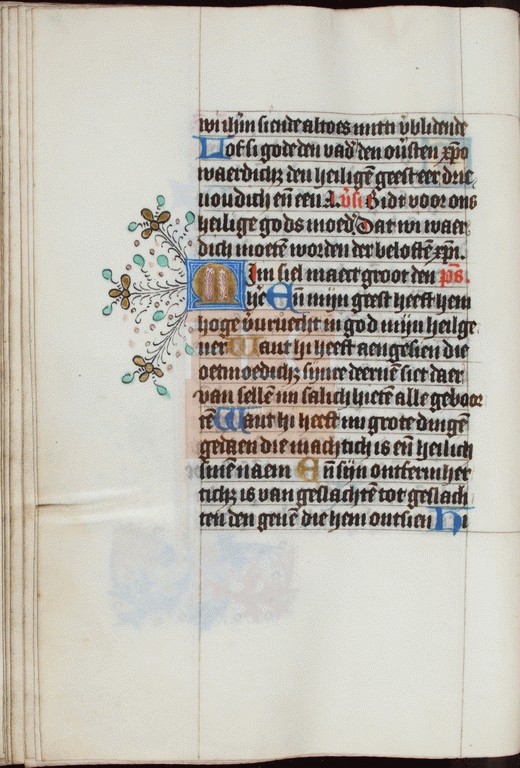 wi ihm siende altoes mitti v̄blidende
Lof si gode den vad̄ den ōūsten xp̄o
waerdich; den heiligē geest eer drie
uoudich eñ een A. v̄si. Bidt voor ons
heilige gods moed̄ Dat wi waer
dich moetē worden der beloftē xp̄i.
Min siel maect groot den ps.
here Eñ mijn geest heeft hem
hoge v̄uruecht in god mijn heilge
uer Want hi heeft aengesien die
oetmoedich; sijnre deernē siet daer
van sellē mi salich hietē alle geboor
tē Want hi heeft mi grote dingē
gedaen die machtich is eñ heilich
sinē naem Eñ sijn ontfermher
tich; is van geslachtē tot geslach
ten den genē die hem ontsien Hi